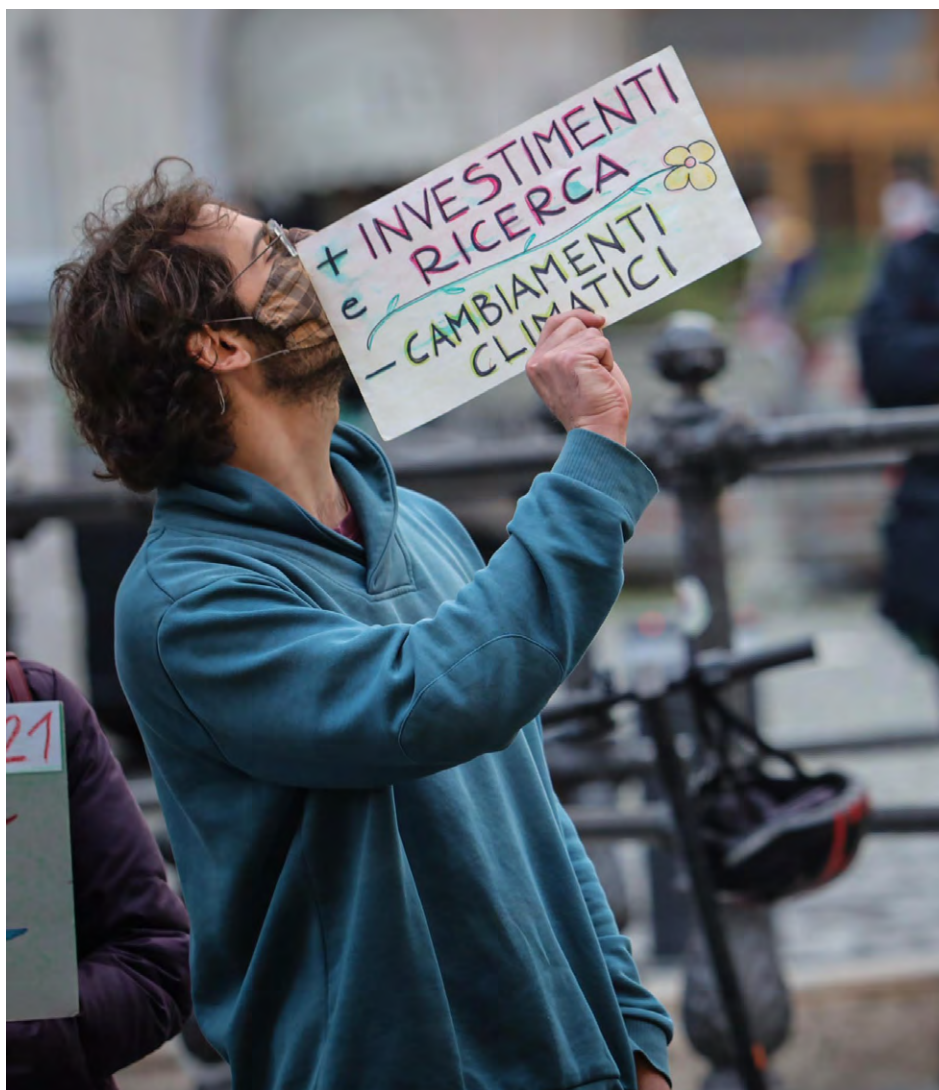 + INVESTIMENTI
RICERCA
e
- CAMBIAMENTI
CLIMATICI
21